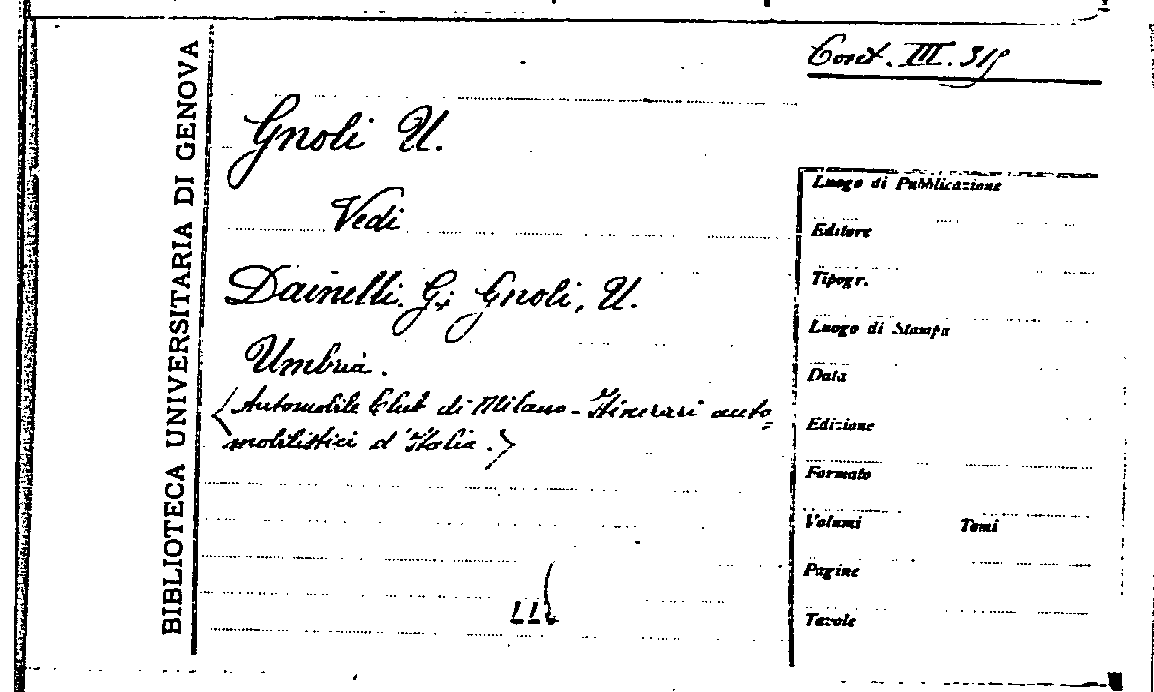 BIBLIOTECA UNIVERSITARIA DI GENOVA
III. 315
Gnoli U.
Vedi
Dainelli. G; Gnoli, U.
Umbria.
(Automobile Club di Milano - Itinerari auto=
mobilistici d'Italia.)
Luogo di Pubblicazione
Editore
Tipogr.
Luogo di Stampa
Data
Edizione
Formato
Volumi Tomi
Pagine
Tavole